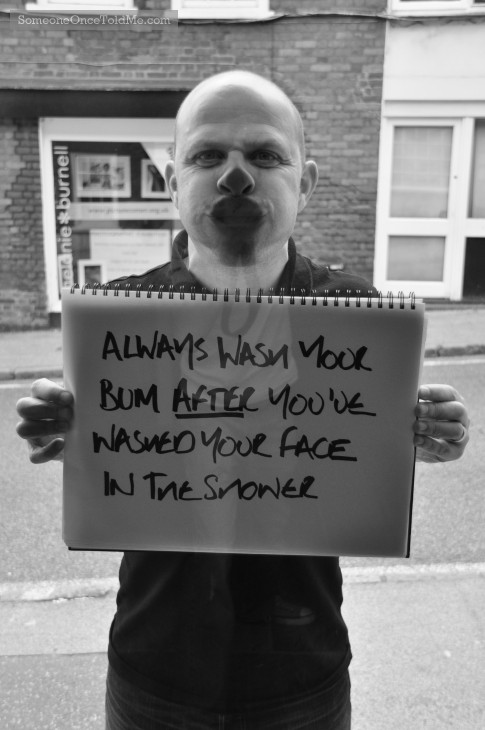 SomeoneOnceToldMe.com
ALWAYS WASH YOUR
BUM AFTER YOU'VE
WASHED YOUR FACE
IN THE SHOWER